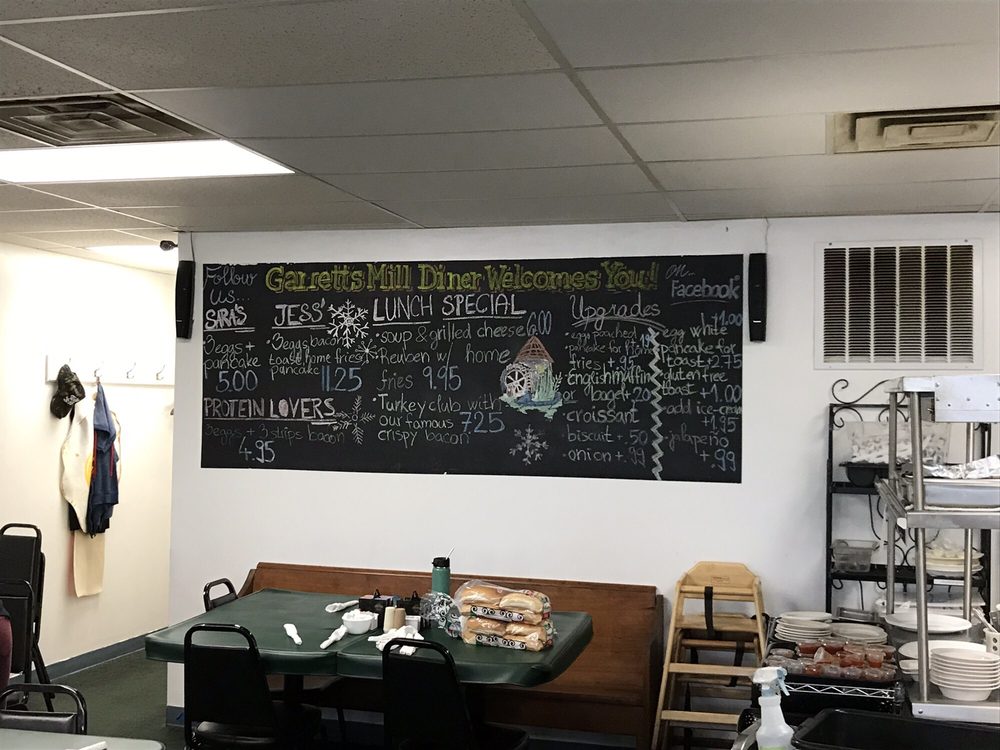 Follow us...
Garrett's Mill Diner Welcomes You!
on...
Facebook
SARA'S
3eggs +
pancake
5.00
PROTEIN LOVERS
3eggs + 3 strips bacon
4.95
JESS'
3eggs bacon
toast home fries
pancake 11.25
LUNCH SPECIAL
• soup & grilled cheese 6.00
• Reuben w/ home
fries 9.95
• Turkey club with
our famous 7.25
crispy bacon
Upgrades
• egg poached
pancake for home
fries +.95
english muffin
or bagel +.20
croissant
biscuit +.50
• onion +.99
+1.00
egg white
pancake for
toast +2.75
gluten free
toast +1.00
add ice-cream
+1.95
jalapeño
+.99